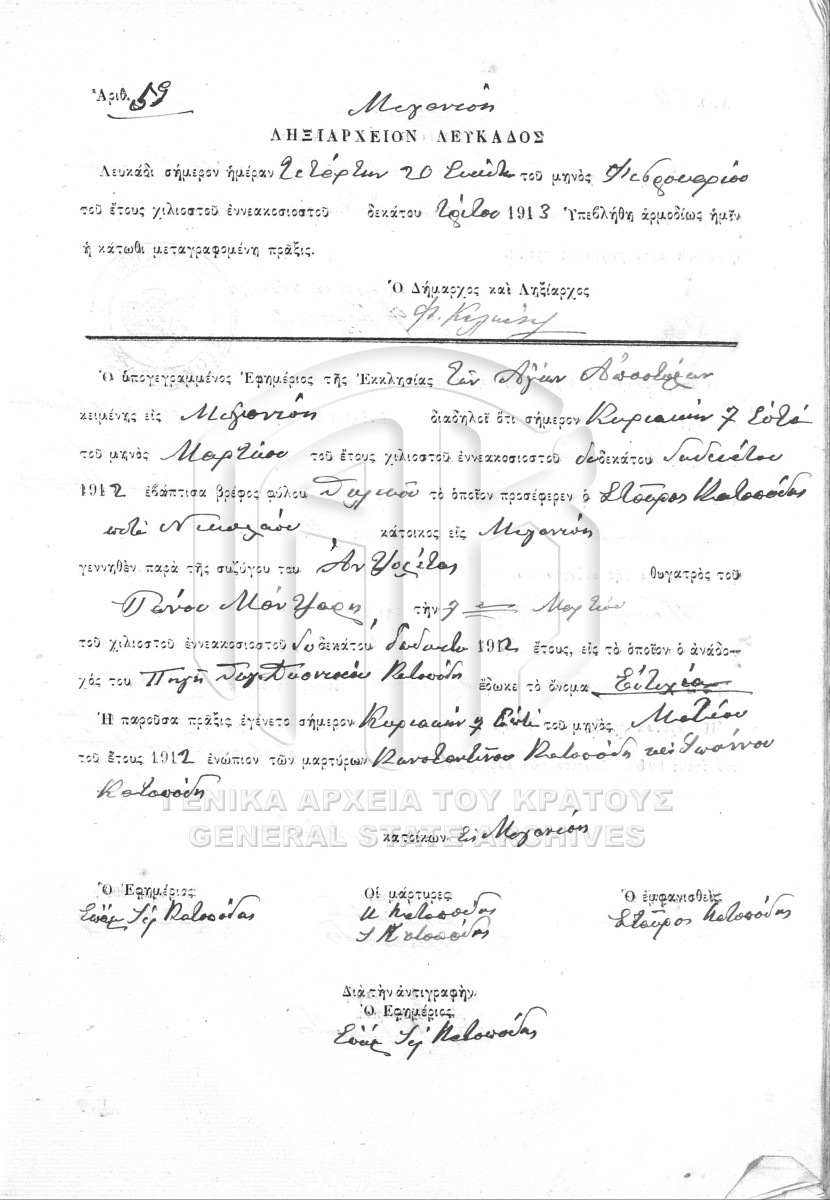 Ἀριθ. 59
Μεγανίση
ΛΗΞΙΑΡΧΕΙΟΝ ΛΕΥΚΑΔΟΣ
Λευκάδι σήμερον ἡμέραν Τετάρτην 20 τοῦ μηνὸς Φεβρουαρίου
τοῦ ἔτους χιλιοστοῦ ἐννεακοσιοστοῦ δεκάτου τρίτου 1913 Ὑπεβλήθη ἁρμοδίως ἡμῖν
ἡ κάτωθι μεταγραφομένη πρᾶξις.
Ὁ Δήμαρχος καὶ Ληξίαρχος
Ὁ ὑπογεγραμμένος Ἐφημέριος τῆς Ἐκκλησίας τῶν Ἁγίων Ἀποστόλων
κειμένης εἰς Μεγανίση διαδηλοῖ ὅτι σήμερον Κυριακὴν 7 Ἑπτὰ
τοῦ μηνὸς Μαρτίου τοῦ ἔτους χιλιοστοῦ ἐννεακοσιοστοῦ δωδεκάτου δωδεκάτου
1912 ἐβάπτισα βρέφος φύλου θηλυκοῦ τὸ ὁποῖον προσέφερεν ὁ Σταῦρος Κατοπόδης
ποτὲ Νικολάου κάτοικος εἰς Μεγανίση
γεννηθὲν παρὰ τῆς συζύγου του Ἀντζολέτας θυγατρὸς τοῦ
Πάνου Μάντζαρη τὴν 7 Μαρτίου
τοῦ χιλιοστοῦ ἐννεακοσιοστοῦ δωδεκάτου δωδεκάτου 1912 ἔτους, εἰς τὸ ὁποῖον ὁ ἀνάδο-
χός του Πηγῆ Κατοπόδη ἔδωκε τὸ ὄνομα Εὐτυχία
Ἡ παροῦσα πρᾶξις ἐγένετο σήμερον Κυριακὴν 7 Ἑπτὰ τοῦ μηνὸς Μαρτίου
τοῦ ἔτους 1912 ἐνώπιον τῶν μαρτύρων Κωνσταντίνου Κατοπόδη καὶ Ἰωάννου
Κατοπόδη
ΓΕΝΙΚΑ ΑΡΧΕΙΑ ΤΟΥ ΚΡΑΤΟΥΣ
GENERAL STATE ARCHIVES
κατοίκων εἰς Μεγανίση
Ὁ Ἐφημέριος Οἱ μάρτυρες Ὁ ἐμφανισθεὶς
Κατοπόδης Κ Κατοπόδης Σταῦρος Κατοπόδης
Ι Κατοπόδης
Διὰ τὴν ἀντιγραφὴν
Ὁ Ἐφημέριος
Κατοπόδης